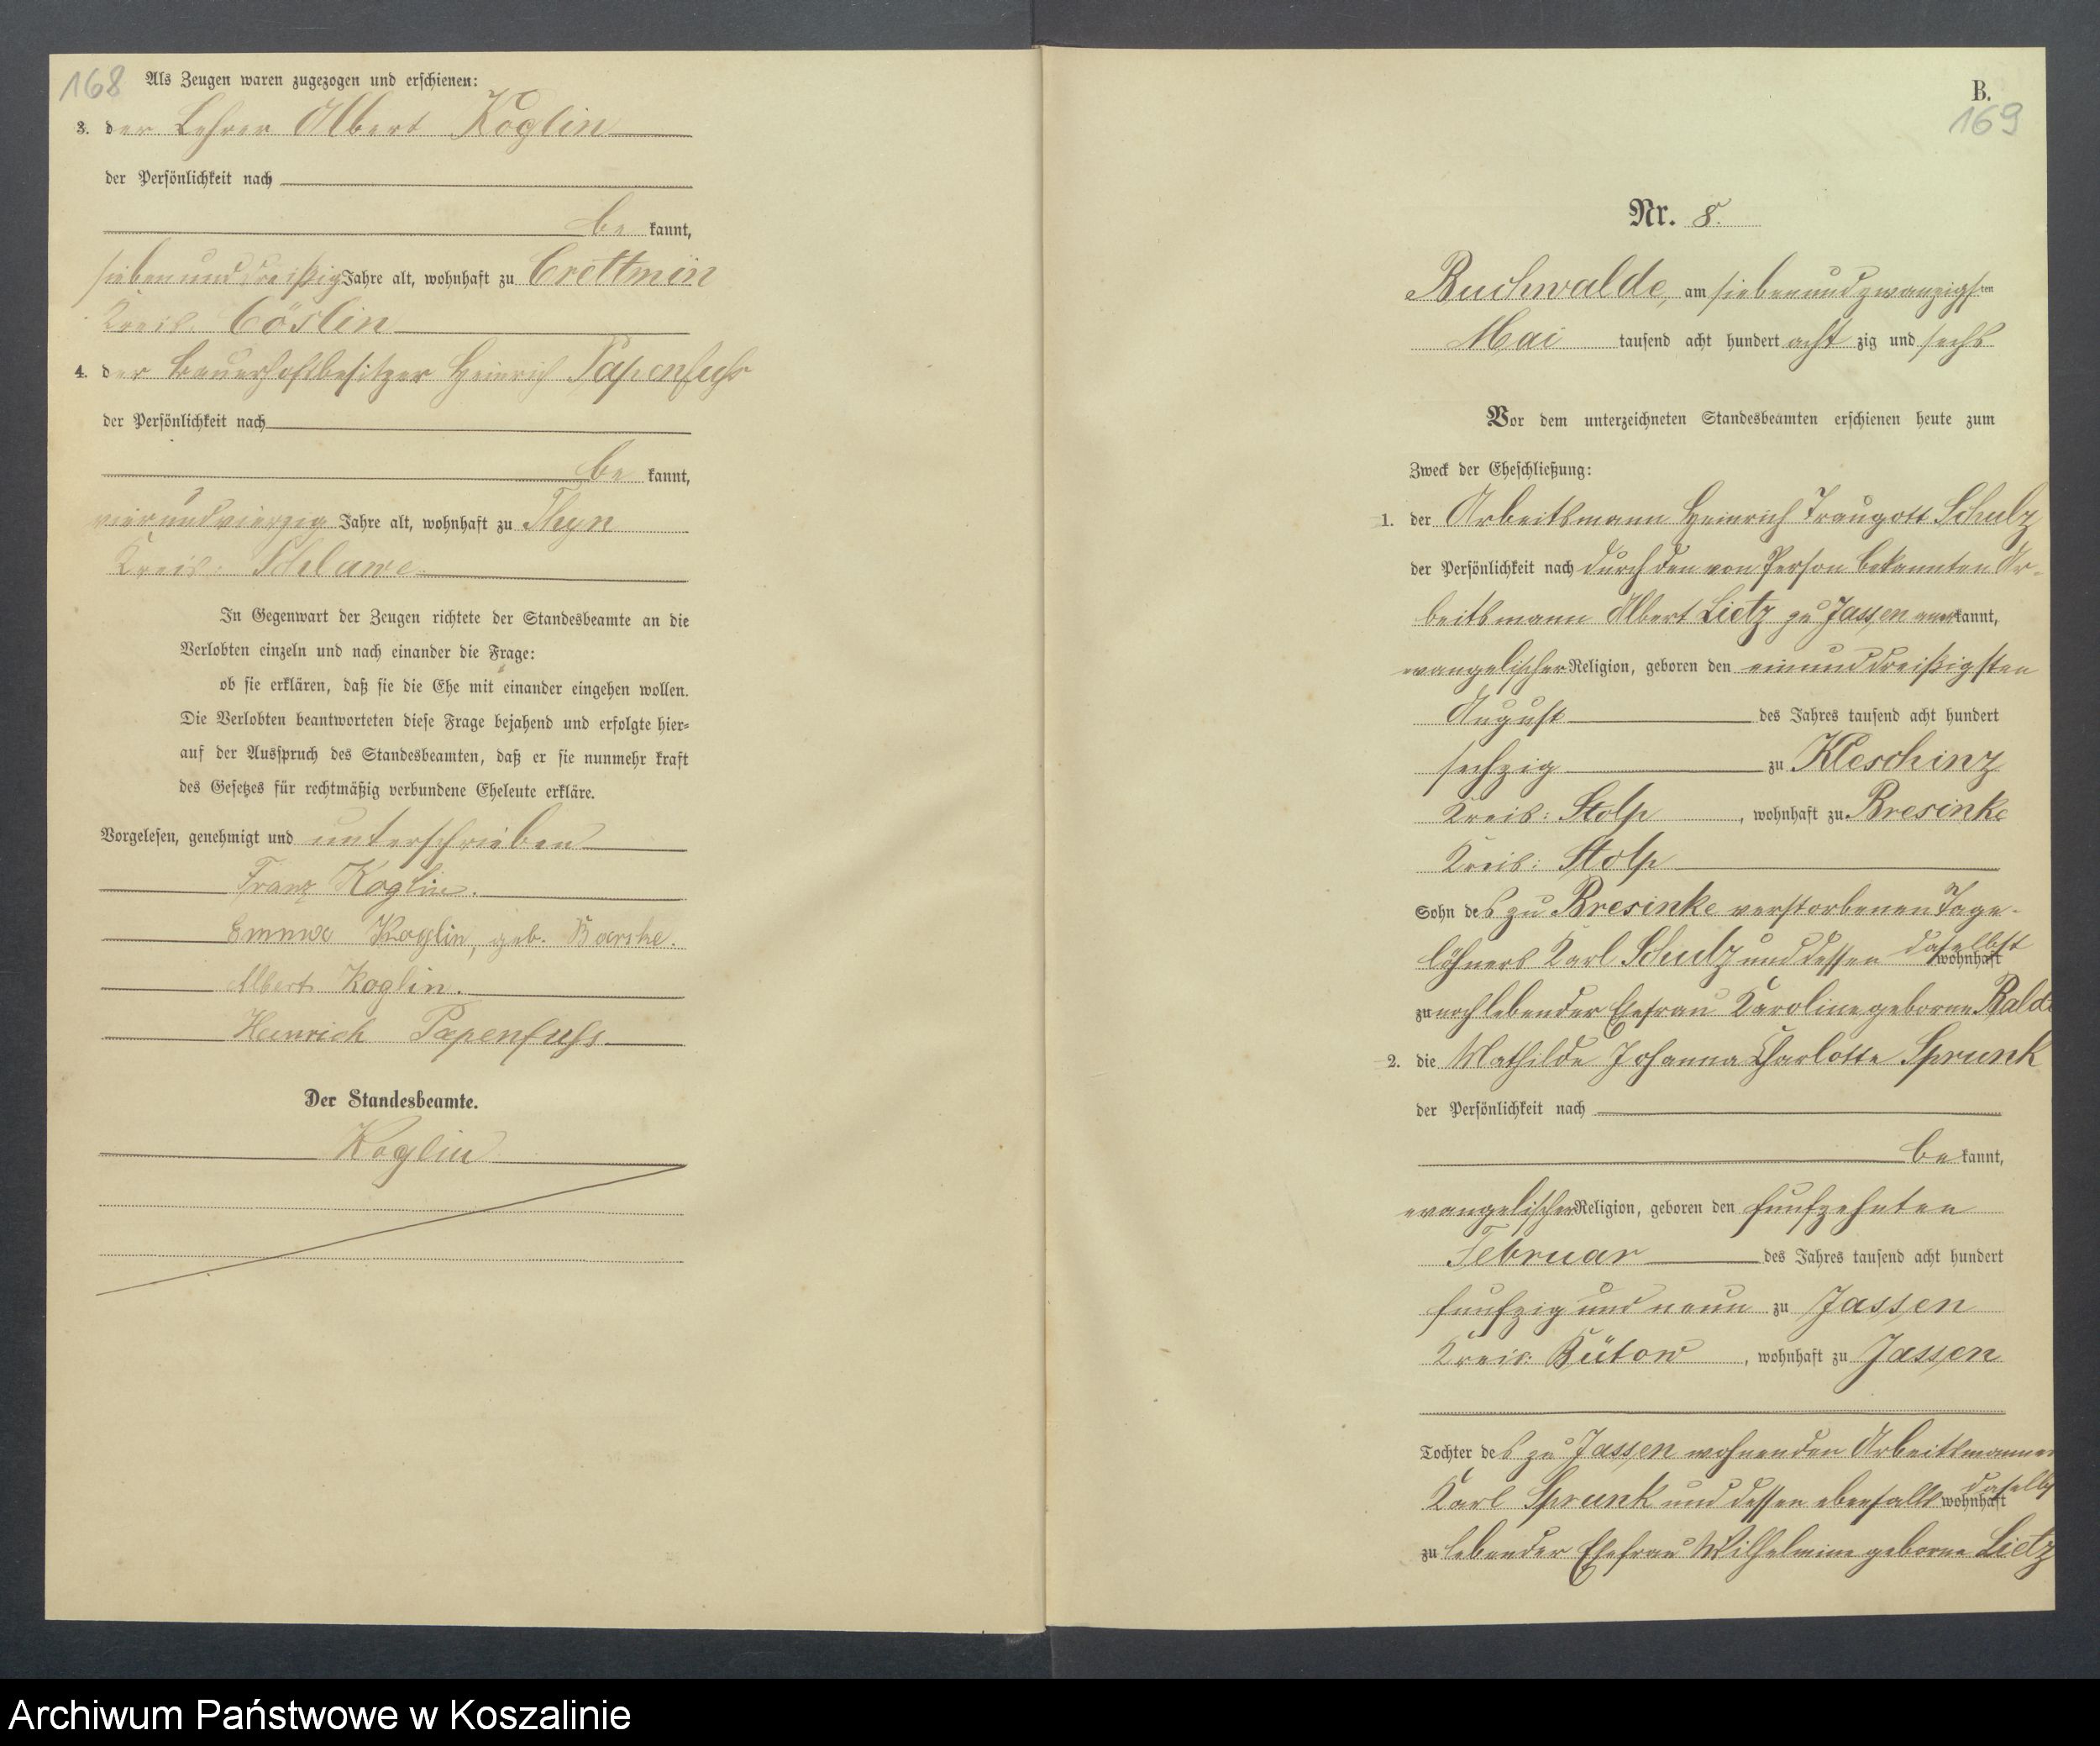 168
Als Zeugen waren zugezogen und erschienen:
3. der Lehrer Albert Koglin
der Persönlichkeit nach
be kannt,
siebenunddreißig Jahre alt, wohnhaft zu Crettmin
Kreis Cöslin
4. der Bauerhofsbesitzer Heinrich Papenfuhs
der Persönlichkeit nach
be kannt,
vierundvierzig Jahre alt, wohnhaft zu Thyn
Kreis: Schlawe
In Gegenwart der Zeugen richtete der Standesbeamte an die
Verlobten einzeln und nach einander die Frage:
ob sie erklären, daß sie die Ehe mit einander eingehen wollen.
Die Verlobten beantworteten diese Frage bejahend und erfolgte hier=
auf der Ausspruch des Standesbeamten, daß er sie nunmehr kraft
des Gesetzes für rechtmäßig verbundene Eheleute erkläre.
Vorgelesen, genehmigt und unterschrieben
Franz Koglin.
Emma Koglin, geb.
Albert Koglin.
Heinrich Papenfuhs.
Der Standesbeamte.
Koglin
B.
169
Nr. 8.
Buchwalde, am siebenundzwanzigsten
Mai tausend acht hundert acht zig und sechs
Vor dem unterzeichneten Standesbeamten erschienen heute zum
Zweck der Eheschließung:
1. der Arbeitsmann Heinrich Traugott Schulz
der Persönlichkeit nach durch den von Person bekannten Ar-
beitsmann Albert Lietz zu Jassen anerkannt,
evangelischer Religion, geboren den einunddreißigsten
August des Jahres tausend acht hundert
sechzig zu Kleschinz
Kreis: Stolp, wohnhaft zu Bresinke
Kreis: Stolp
Sohn des zu Bresinke verstorbenen Tage-
löhners Karl Schulz und dessen daselbst wohnhaft
zu noch lebender Ehefrau Karoline geborne
2. die Mathilde Johanna Charlotte Sprunk
der Persönlichkeit nach
be kannt,
evangelischer Religion, geboren den funfzehnten
Februar des Jahres tausend acht hundert
funfzig und neun zu Jassen
Kreis: Bütow, wohnhaft zu Jassen
Tochter des zu Jassen wohnenden Arbeitsmannes
Karl Sprunk und dessen ebenfalls daselbst wohnhaft
zu lebender Ehefrau Wilhelmine geborne Lietz
Archiwum Państwowe w Koszalinie